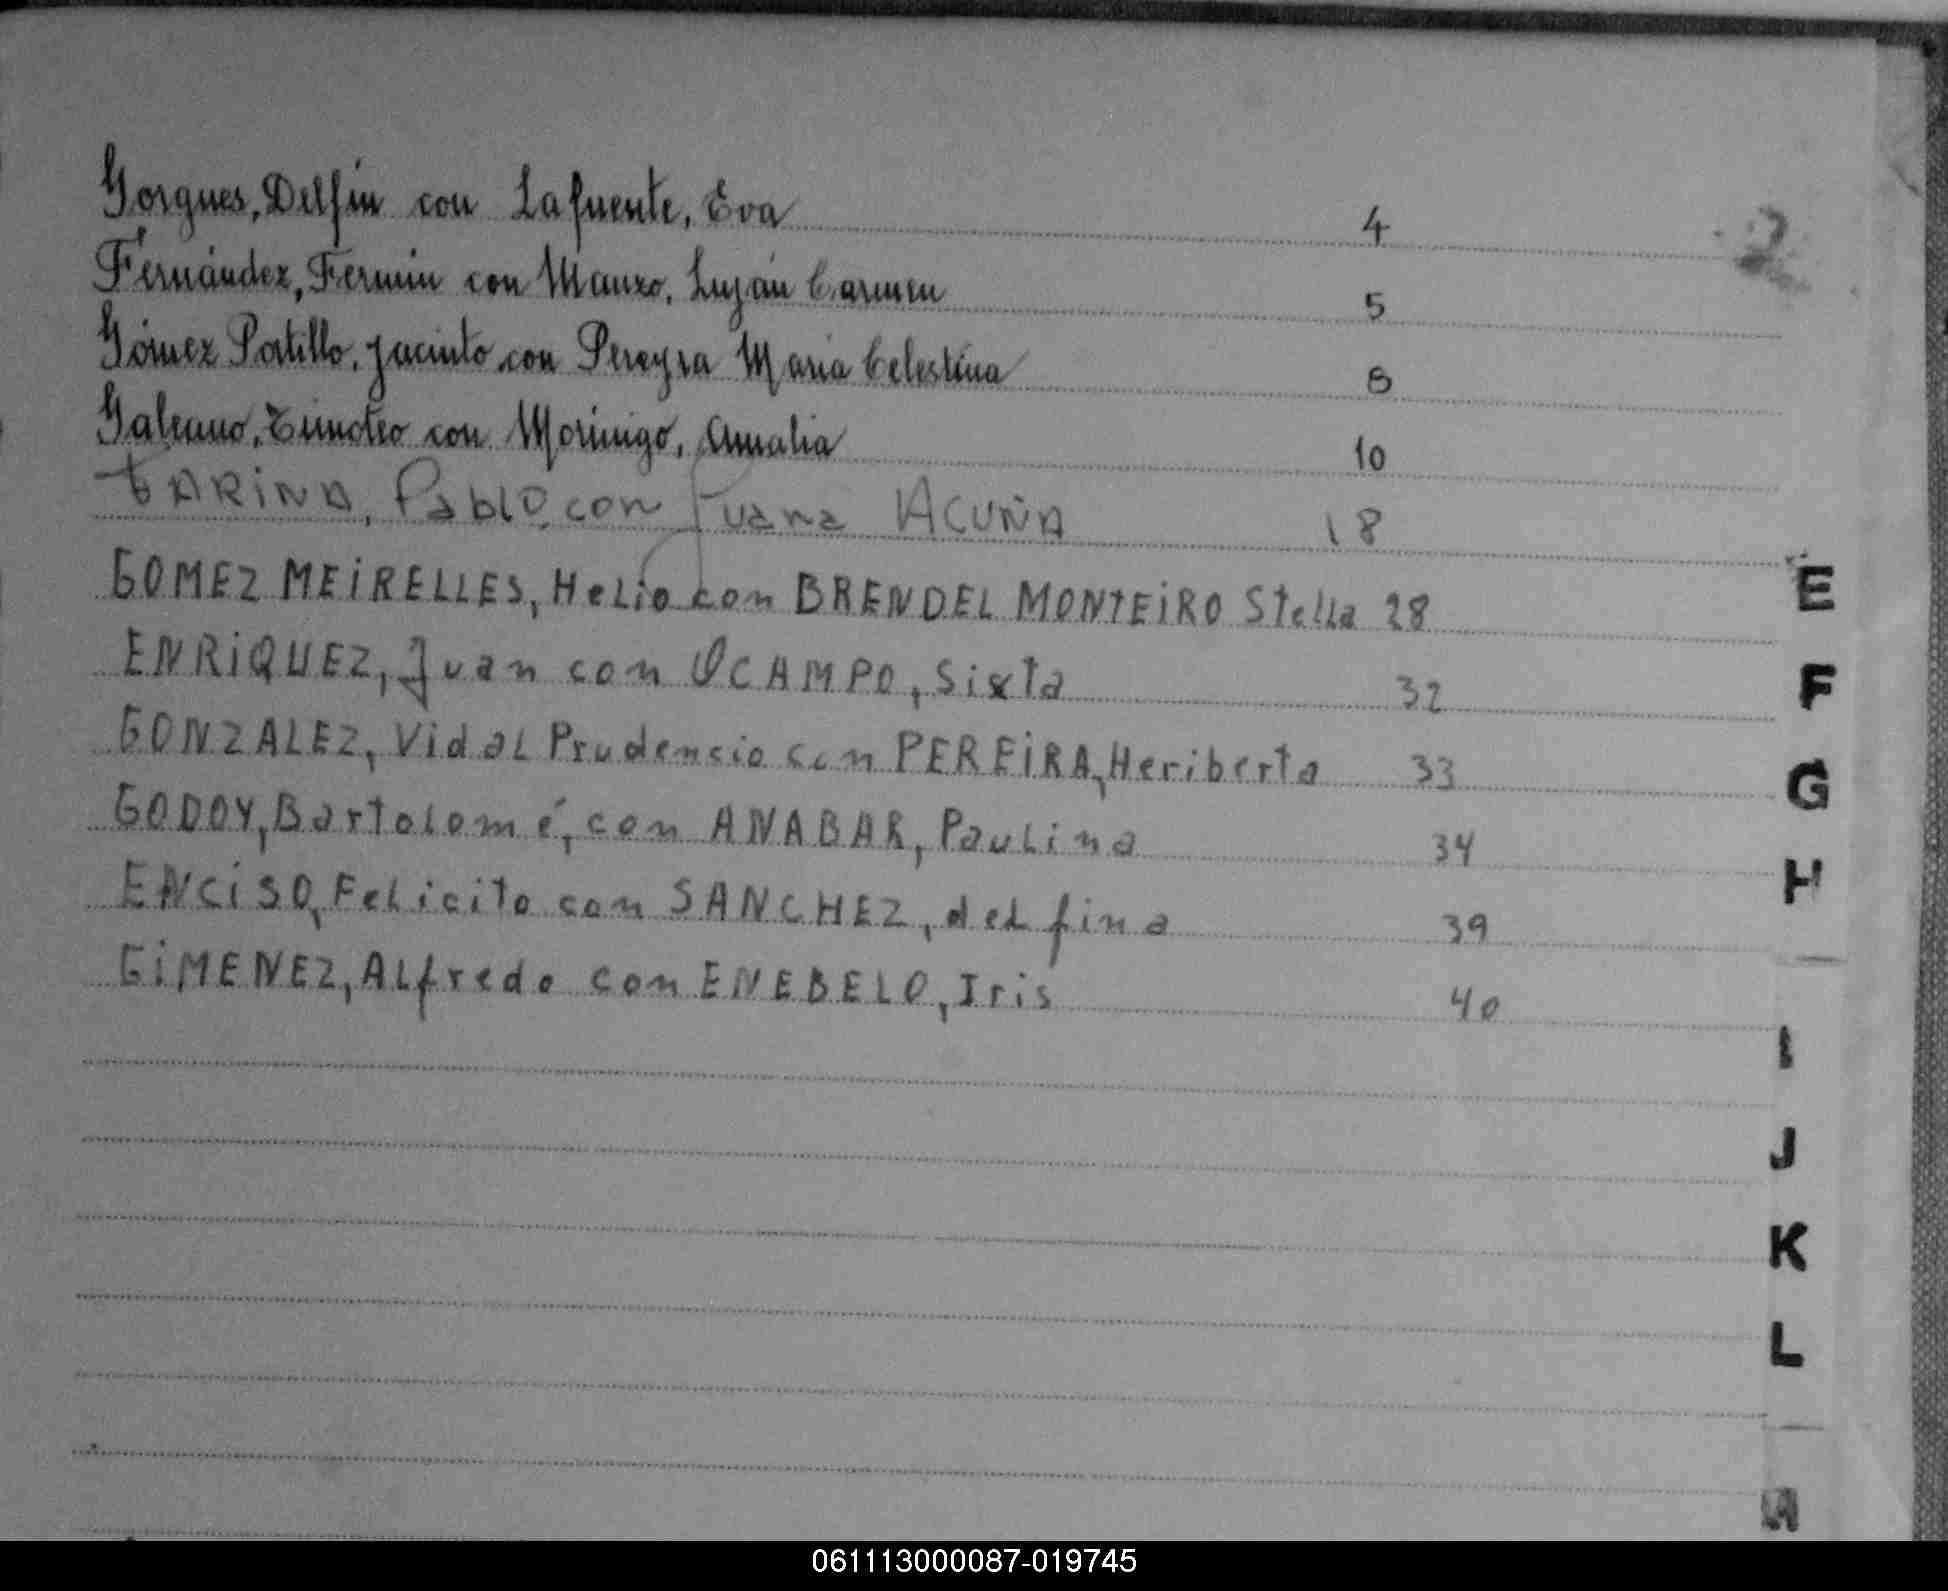 Gorgues, Delfín con Lafuente, Eva 4
Fernández, Fermín con Manzo, Luján Carmen 5
Gómez Portillo, Jacinto con Pereyra María Celestina 8
Galeano, Timoteo con Morinigo, Amalia 10
FARiNA, Pablo, con Juana ACUÑA 18
GOMEZ MEiRELLES, Helio con BRENDEL MONTEiRO Stella 28
ENRiQUEZ, Juan con OCAMPO, Sixta 32
GONZALEZ, Vidal Prudencio con PEREiRA, Heriberta 33
GODOY, Bartolomé, con ANABAR, Paulina 34
ENCiSO, Felicito con SANCHEZ, delfina 39
GiMENEZ, Alfredo con ENEBELO, Iris 40
E
F
G
H
I
J
K
L
061113000087-019745